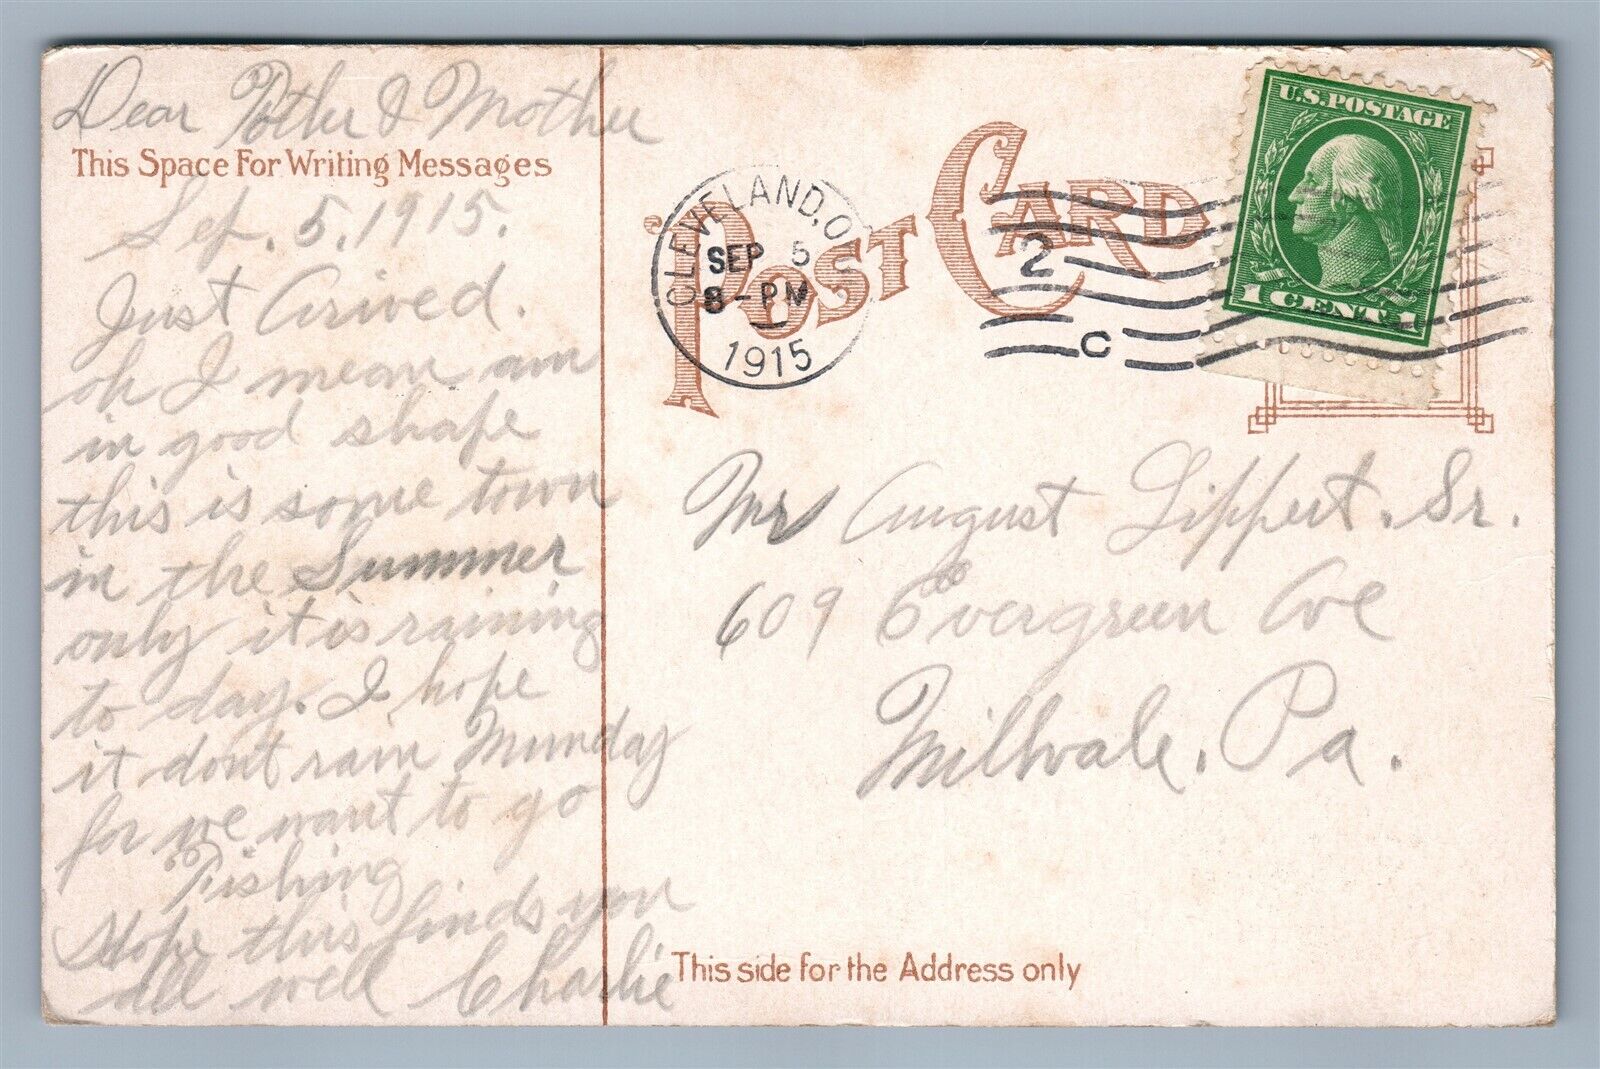 Dear Father & Mother
This Space For Writing Messages
Sep. 5, 1915.
Just Arived.
oh I mean am
in good shape
this is some town
in the Summer
only it is raining
to day. I hope
it dont rain Munday
for we want to go
Fishing
Hope this finds you
all well Charlie
POST CARD
CLEVELAND, O
SEP 5
8-PM
1915
2
C
U.S. POSTAGE
1 CENT 1
Mr August Lippert. Sr.
609 Evergreen Ave
Millvale, Pa.
This side for the Address only